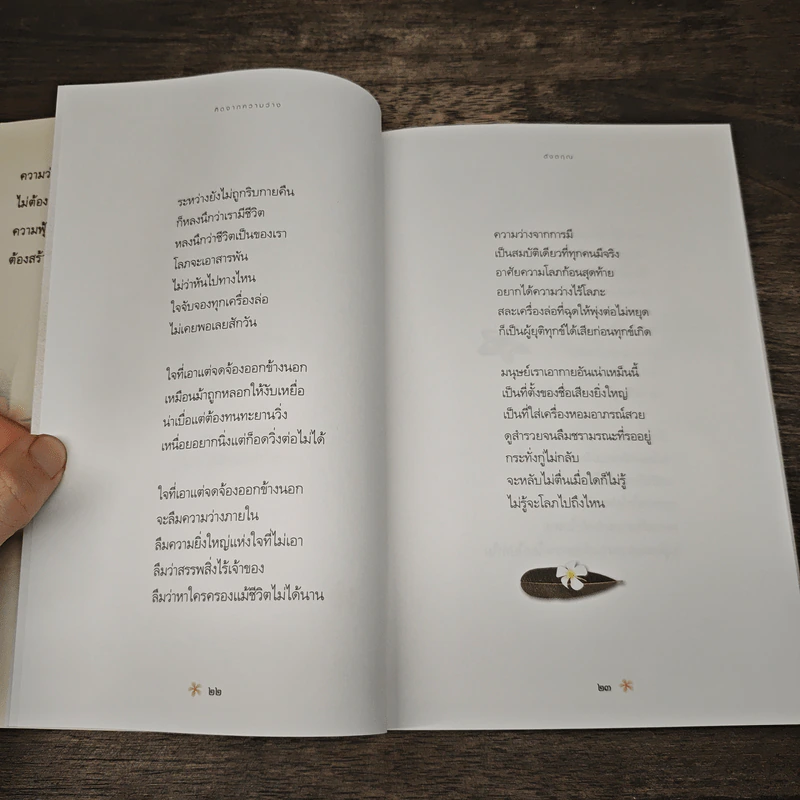 ความว
ไม่ต้อง
ความฟุ้
ต้องสร้
คิดจากความว่าง
ระหว่างยังไม่ถูกริบกายคืน
ก็หลงนึกว่าเรามีชีวิต
หลงนึกว่าชีวิตเป็นของเรา
โลภจะเอาสารพัน
ไม่ว่าหันไปทางไหน
ใจจับจองทุกเครื่องล่อ
ไม่เคยพอเลยสักวัน
ใจที่เอาแต่จดจ้องออกข้างนอก
เหมือนม้าถูกหลอกให้งับเหยื่อ
น่าเบื่อแต่ต้องทนทะยานวิ่ง
เหนื่อยอยากนิ่งแต่ก็อดวิ่งต่อไม่ได้
ใจที่เอาแต่จดจ้องออกข้างนอก
จะลืมความว่างภายใน
ลืมความยิ่งใหญ่แห่งใจที่ไม่เอา
ลืมว่าสรรพสิ่งไร้เจ้าของ
ลืมว่าหาใครครองแม้ชีวิตไม่ได้นาน
๒๒
ดังตฤณ
ความว่างจากการมี
เป็นสมบัติเดียวที่ทุกคนมีจริง
อาศัยความโลภก้อนสุดท้าย
อยากได้ความว่างไร้โลภะ
สละเครื่องล่อที่ฉุดให้พุ่งต่อไม่หยุด
ก็เป็นผู้ยุติทุกข์ได้เสียก่อนทุกข์เกิด
มนุษย์เราเอากายอันเน่าเหม็นนี้
เป็นที่ตั้งของชื่อเสียงยิ่งใหญ่
เป็นที่ใส่เครื่องหอมอาภรณ์สวย
ดูสำรวยจนลืมชรามรณะที่รออยู่
กระทั่งกู่ไม่กลับ
จะหลับไม่ตื่นเมื่อใดก็ไม่รู้
ไม่รู้จะโลภไปถึงไหน
๒๓